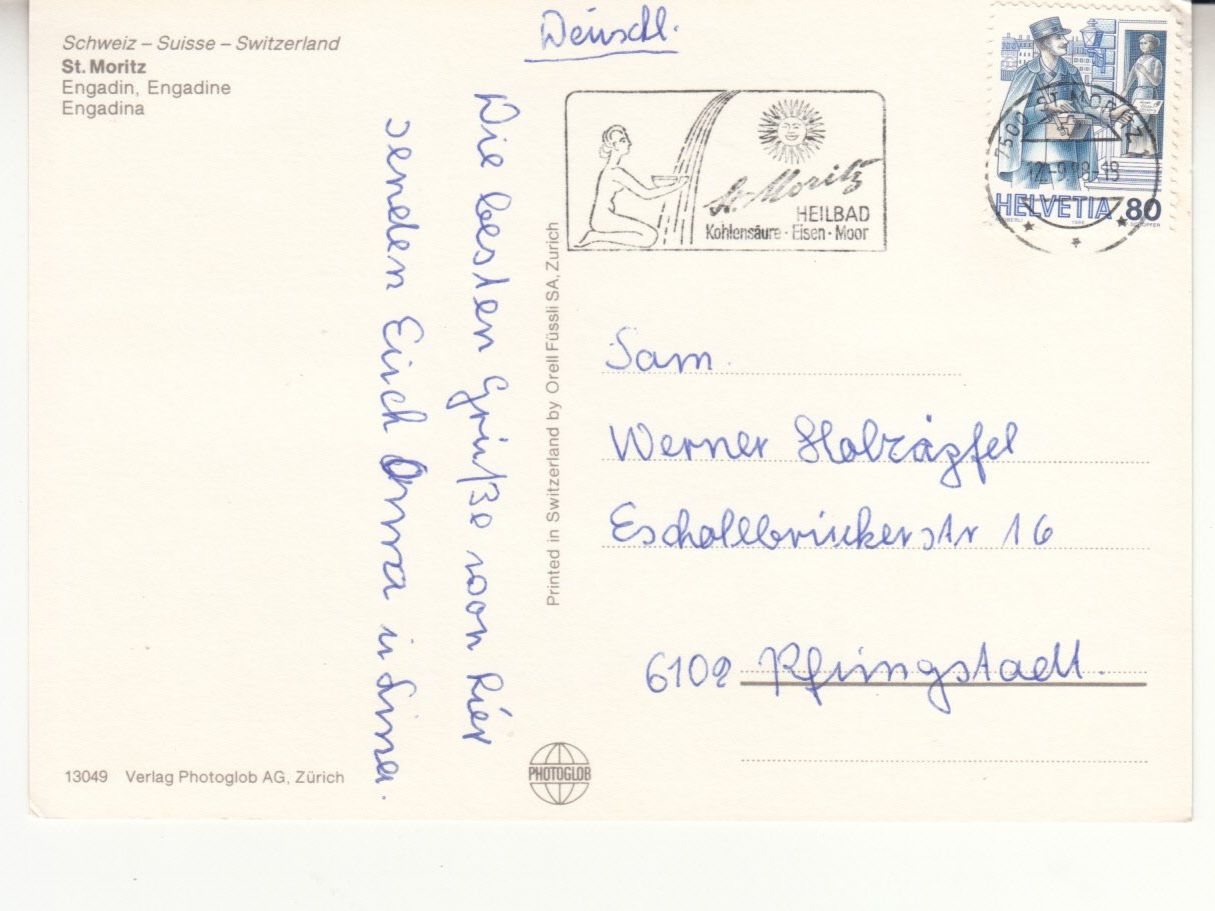 Schweiz – Suisse – Switzerland
St. Moritz
Engadin, Engadine
Engadina
Deutschl.
Die besten Grüße von hier
senden Euch Anna u. Lina.
St. Moritz
HEILBAD
Kohlensäure · Eisen · Moor
7500 ST. MORITZ
HELVETIA 80
Printed in Switzerland by Orell Füssli SA, Zurich
Fam.
Werner Holzäpfel
Eschollbrückerstr 16
6102 Pfungstadt.
13049 Verlag Photoglob AG, Zürich
PHOTOGLOB